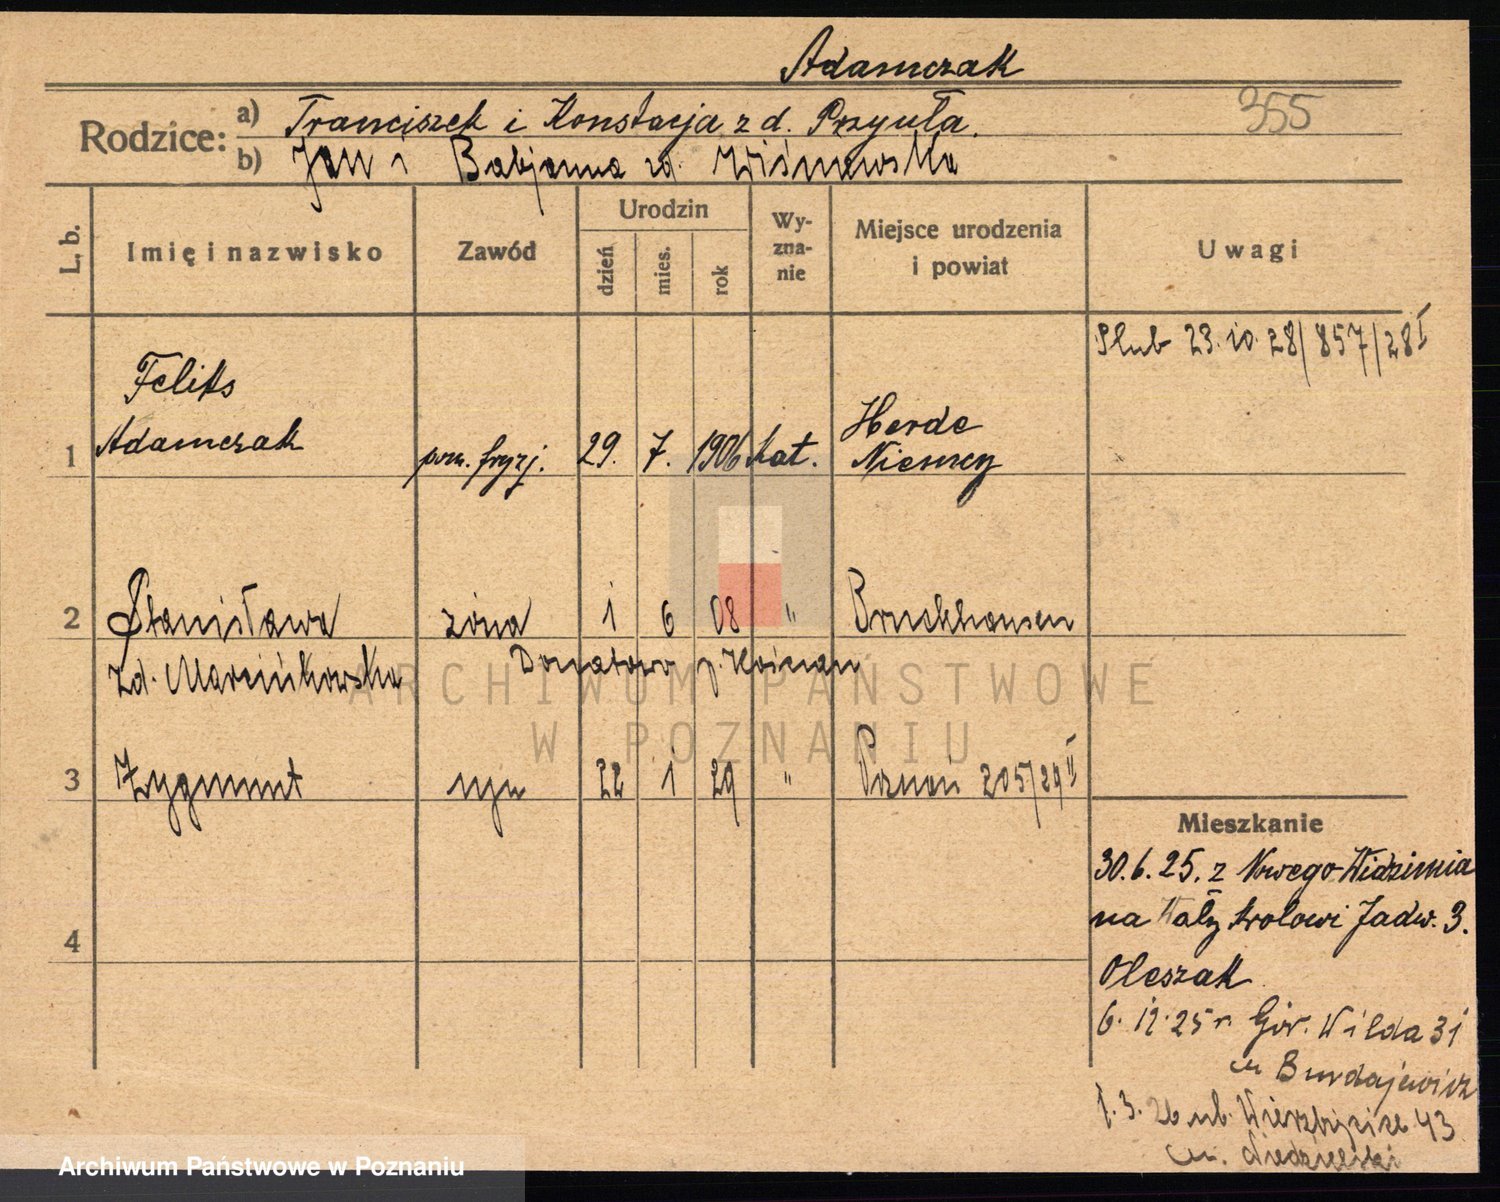 Adamczak
355
Rodzice: a) Franciszek i Konstacja z d. Przyuła.
b) Jan i Babjanna zd. Wiśniewska
L. b. Imię i nazwisko Zawód Urodzin dzień mies. rok Wy-zna-nie Miejsce urodzenia i powiat Uwagi
Slub 23. 10. 28/857/28 I
Feliks
1 Adamczak pom. fryzj. 29. 7. 1906 kat. Herde Niemcy
2 Stanisława żona 1 6 08 " Bruckhausen
zd. Marcinkowska Donatowo p. Kościan
3 Zygmunt syn 22 1 29 " Poznań 205/29 II
4
Mieszkanie
30.6.25. z Nowego-Widzimia
na Wały Krolowi Jadw. 3.
Oleszak
6. 12. 25 r. Gór. Wilda 31
Burdajewicz
1. 3. 26 ul. Wierzbięcice 43
Niedzielski
ARCHIWUM PAŃSTWOWE
W POZNANIU
Archiwum Państwowe w Poznaniu